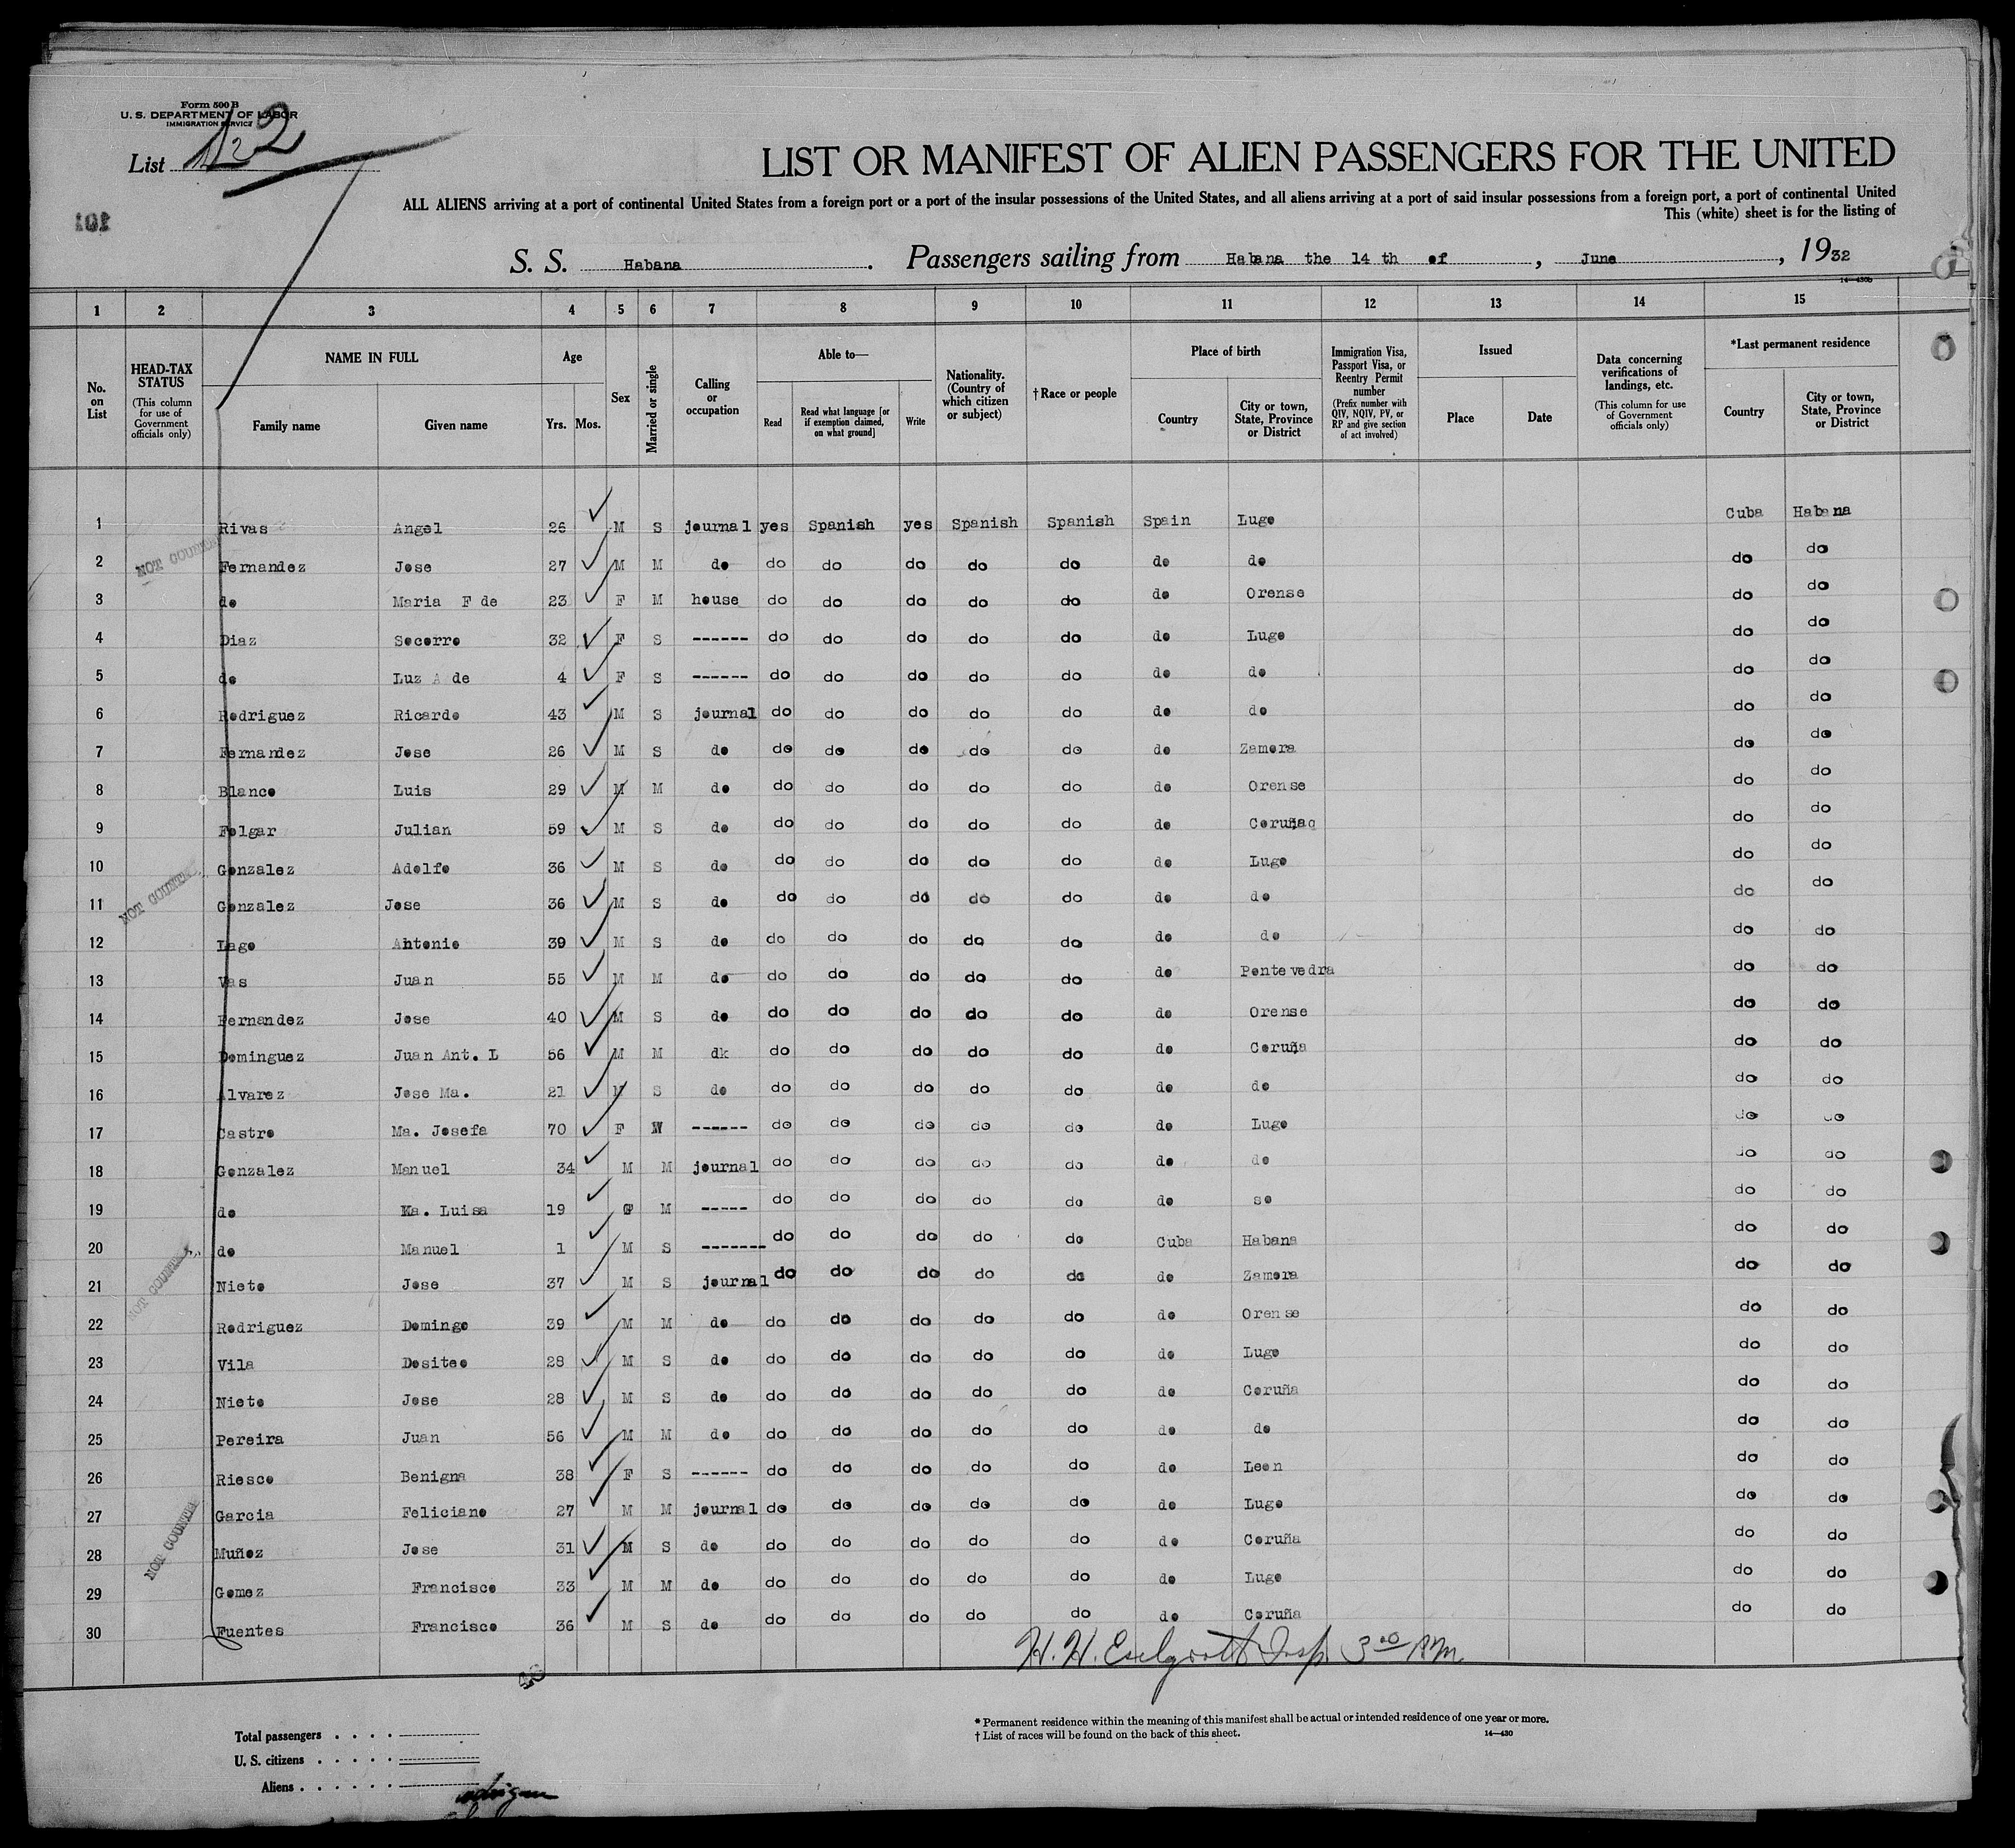 Form 500 B
U. S. DEPARTMENT OF LABOR
IMMIGRATION SERVICE
List 2
101
LIST OR MANIFEST OF ALIEN PASSENGERS FOR THE UNITED
ALL ALIENS arriving at a port of continental United States from a foreign port or a port of the insular possessions of the United States, and all aliens arriving at a port of said insular possessions from a foreign port, a port of continental United
This (white) sheet is for the listing of
S. S. Habana . Passengers sailing from Habana the 14 th of , June , 1932
14—430b
1 2 3 4 5 6 7 8 9 10 11 12 13 14 15
No. on List HEAD-TAX STATUS (This column for use of Government officials only) NAME IN FULL Family name Given name Age Yrs. Mos. Sex Married or single Calling or occupation Able to— Read Read what language [or if exemption claimed, on what ground] Write Nationality. (Country of which citizen or subject) † Race or people Place of birth Country City or town, State, Province or District Immigration Visa, Passport Visa, or Reentry Permit number (Prefix number with QIV, NQIV, PV, or RP and give section of act involved) Issued Place Date Data concerning verifications of landings, etc. (This column for use of Government officials only) *Last permanent residence Country City or town, State, Province or District
1 Rivas Angel 26 M S journal yes Spanish yes Spanish Spanish Spain Lugo Cuba Habana
NOT COUNTED
2 Fernandez Jose 27 M M do do do do do do do do do do
3 do Maria F de 23 F M house do do do do do do Orense do do
4 Diaz Socorro 32 F S ------ do do do do do do Lugo do do
5 do Luz A de 4 F S ------ do do do do do do do do do
6 Rodriguez Ricardo 43 M S journal do do do do do do do do do
7 Fernandez Jose 26 M S do do do do do do do Zamora do do
8 Blanco Luis 29 M M do do do do do do do Orense do do
9 Folgar Julian 59 M S do do do do do do do Coruñaq do do
10 Gonzalez Adolfo 36 M S do do do do do do do Lugo do do
NOT COUNTED
11 Gonzalez Jose 36 M S do do do do do do do do do do
12 Lago Antonio 39 M S do do do do do do do do do do
13 Vas Juan 55 M M do do do do do do do Pontevedra do do
14 Fernandez Jose 40 M S do do do do do do do Orense do do
15 Dominguez Juan Ant. L 56 M M dk do do do do do do Coruña do do
16 Alvarez Jose Ma. 21 M S do do do do do do do do do do
17 Castro Ma. Josefa 70 F W ------ do do do do do do Lugo do do
18 Gonzalez Manuel 34 M M journal do do do do do do do do do
19 do Ma. Luisa 19 F M ----- do do do do do do so do do
20 do Manuel 1 M S ------- do do do do do Cuba Habana do do
NOT COUNTED
21 Nieto Jose 37 M S journal do do do do do do Zamora do do
22 Rodriguez Domingo 39 M M do do do do do do do Orense do do
23 Vila Dositeo 28 M S do do do do do do do Lugo do do
24 Nieto Jose 28 M S do do do do do do do Coruña do do
25 Pereira Juan 56 M M do do do do do do do do do do
26 Riesco Benigna 38 F S ------ do do do do do do Leon do do
27 Garcia Feliciano 27 M M journal do do do do do do Lugo do do
NOT COUNTED
28 Muñoz Jose 31 M S do do do do do do do Coruña do do
29 Gomez Francisco 33 M M do do do do do do do Lugo do do
30 Fuentes Francisco 36 M S do do do do do do do Coruña do do
H. H. Insp. 3 00 P.M.
* Permanent residence within the meaning of this manifest shall be actual or intended residence of one year or more.
† List of races will be found on the back of this sheet.
14—430
Total passengers . . . .
U. S. citizens . . . . .
Aliens . . . . . .